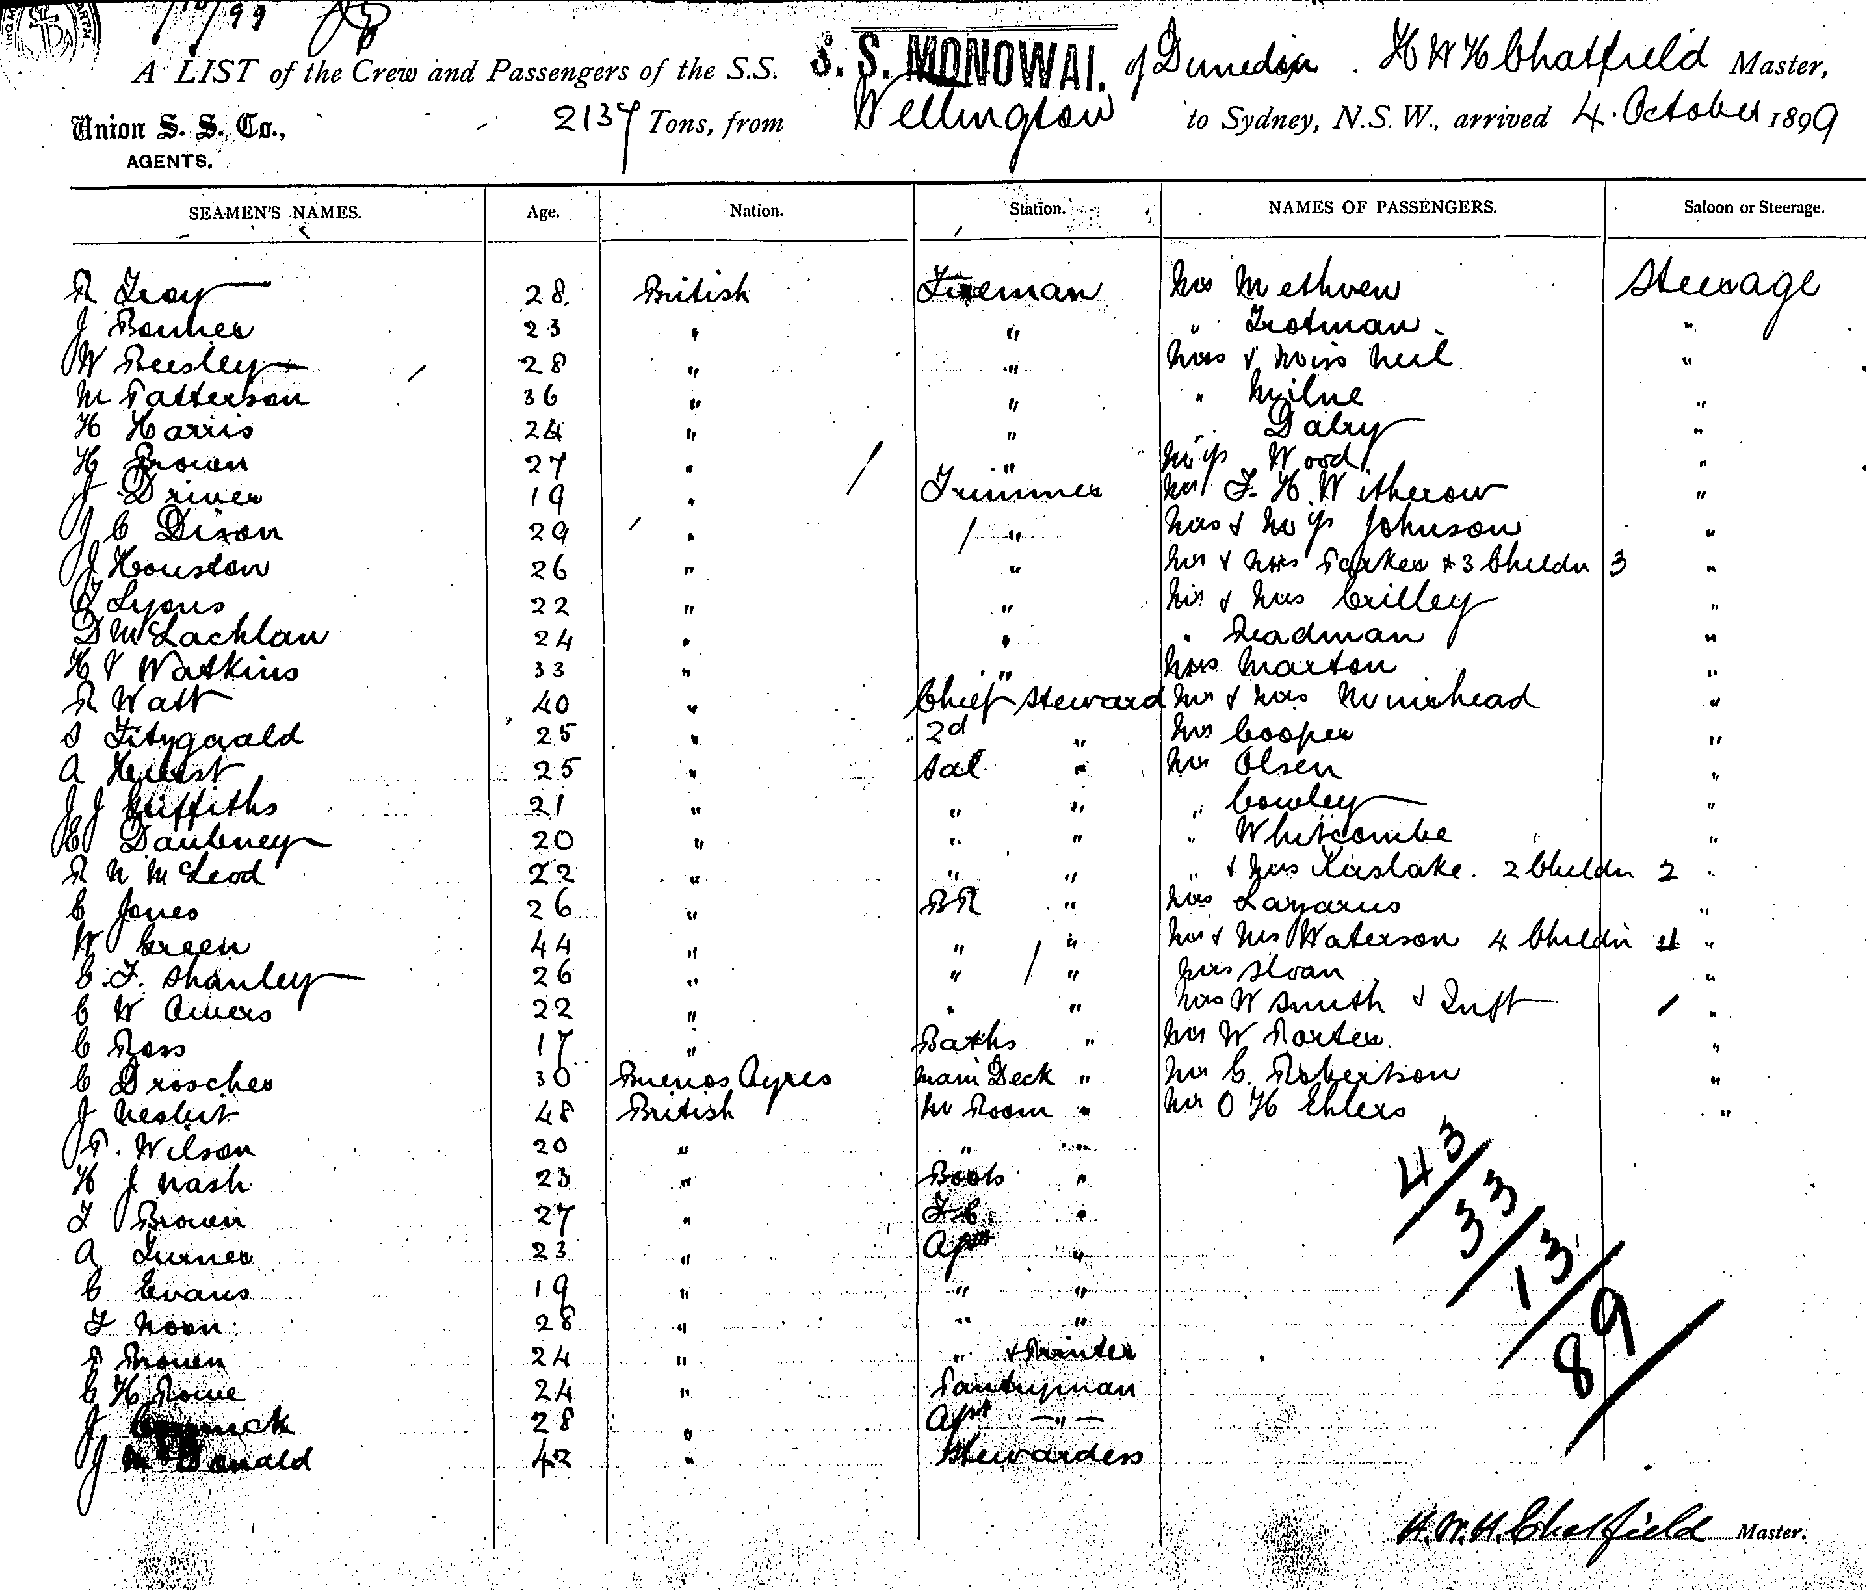 /10/99
A LIST of the Crew and Passengers of the S.S. S. S. MONOWAI. of Dunedin. H W H Chatfield Master,
Union S. S. Co., AGENTS. 2137 Tons, from Wellington to Sydney, N.S.W., arrived 4 October 1899
SEAMEN'S NAMES. Age. Nation. Station. NAMES OF PASSENGERS. Saloon or Steerage.
R Troy 28 British Fireman Mr Methven Steerage
J Bonner 23 " " " Trotman "
W Beesley 28 " " Mrs & Miss Neil "
M Patterson 36 " " " Milne "
H Harris 24 " " " Dalry "
H Brown 27 " " Wood "
J Driver 19 " Trimmer Mr F. H. Witherow "
J C Dixon 29 " " Mrs & Johnson "
J Houston 26 " " Mr & Mrs Parker & 3 Childn 3 "
Lyons 22 " " Mr & Mrs Crilley "
D McLachlan 24 " " " Deadman "
H V Watkins 33 " " Marton "
R Watt 40 " Chief Steward Mr & Mrs Muirhead "
S Fitzgerald 25 " 2d " Mrs Cooper "
A Hurst 25 " Sal " Mr Olsen "
J J Griffiths 21 " " " " Cowley "
E Daubney 20 " " " " Whitcombe "
R N McLeod 22 " " " " & Mrs Kerslake. 2 Childn 2 "
C Jones 26 " BR " Mrs Lazarus "
W Green 44 " " " Mr & Mrs Waterson 4 Childn 4 "
C. F. Shanley 26 " " " Mrs Sloan "
C W Amers 22 " " " Mrs W Smith & Inft 1 "
C Ross 17 " Baths " Mr W Porter. "
C Droscher 30 Buenos Ayres Main Deck " Mr C. Robertson "
J Nesbit 48 British M Room " Mr O H Ehlers "
P. Wilson 20 " " "
H J Nash 23 " Boots "
F Brown 27 " F C. "
A Turner 23 " Apt "
C Evans 19 " " "
F Noon 28 " " "
Brown 24 " " & Printer
C H Rowe 24 " Pantryman
J 28 " Apt "
J McDonald 42 " Stewardess
43/33/13/89
H. W. H. Chatfield Master.